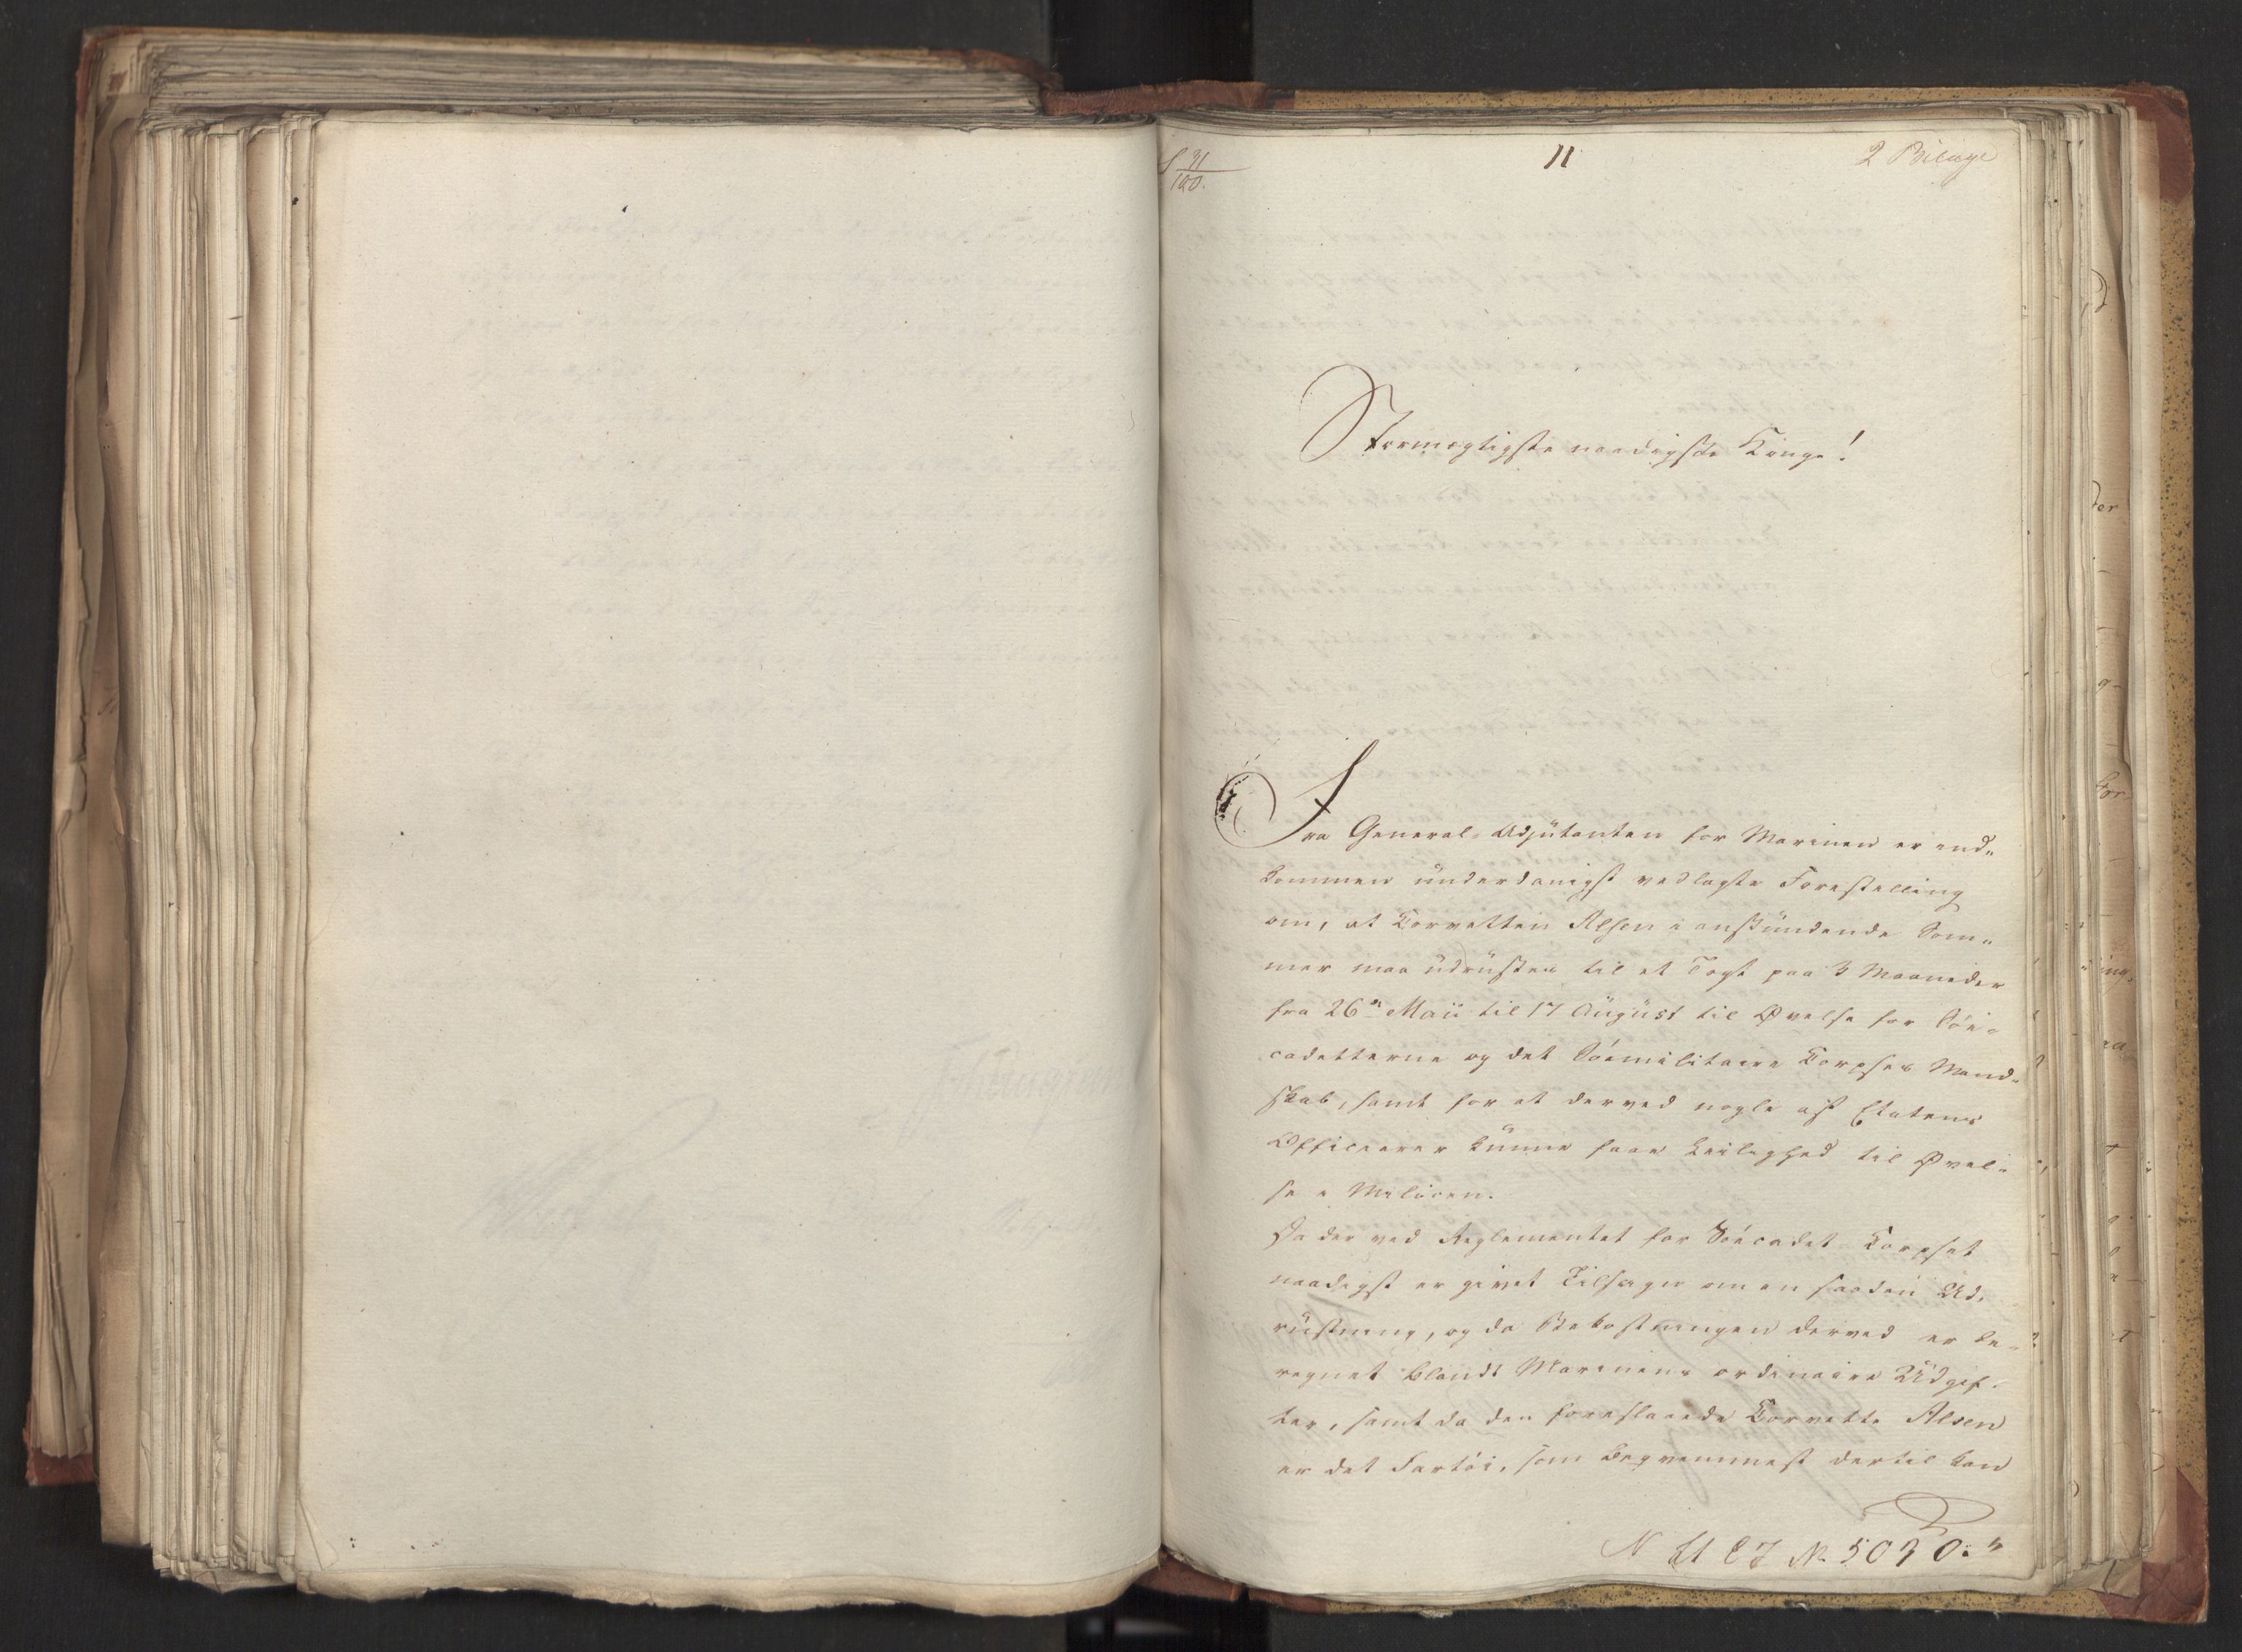 S 31/100.
11
2 Bilage
Stormægtigste naadigste Konge!
Fra General-Adjütanten for Marinen er ind-
kommen ünderdanigst vedlagte Forestilling
om, at Corvetten Alsen i anstündende Som-
mer maa üdrüstes til et Togt paa 3 Maaneder
fra 26de Maii til 17 Aügüst til Øvelse for Søe-
cadetterne og det Søemilitaire Corpses Mand-
skab, samt for at derved nogle af Etatens
Officierer künne faae Leilighed til Øvel-
se i Metieren.
Da der ved Reglementet for Søecadet Corpset
naadigst er givet Tilsagn om en saadan Ud-
rüstning, og da Bekostningen derved er be-
regnet blandt Marinens ordinaire Udgif-
ter, samt da den foreslaaede Corvette Alsen
er det Fartøi, som beqvemmest dertil kan